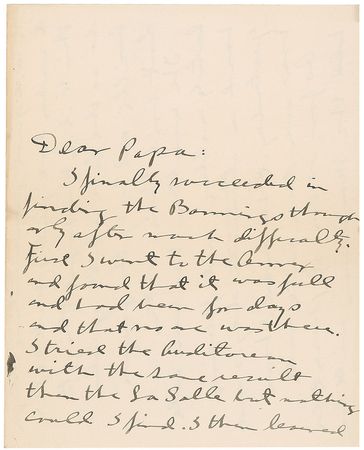 Dear Papa:
I finally succeeded in
finding the Bannings though
only after much difficulty.
First I went to the Annex
and found that it was full
and had been for days
and that no one was there.
I tried the Auditorium
with the same result
then the La Salle but nothing
could I find. I then learned